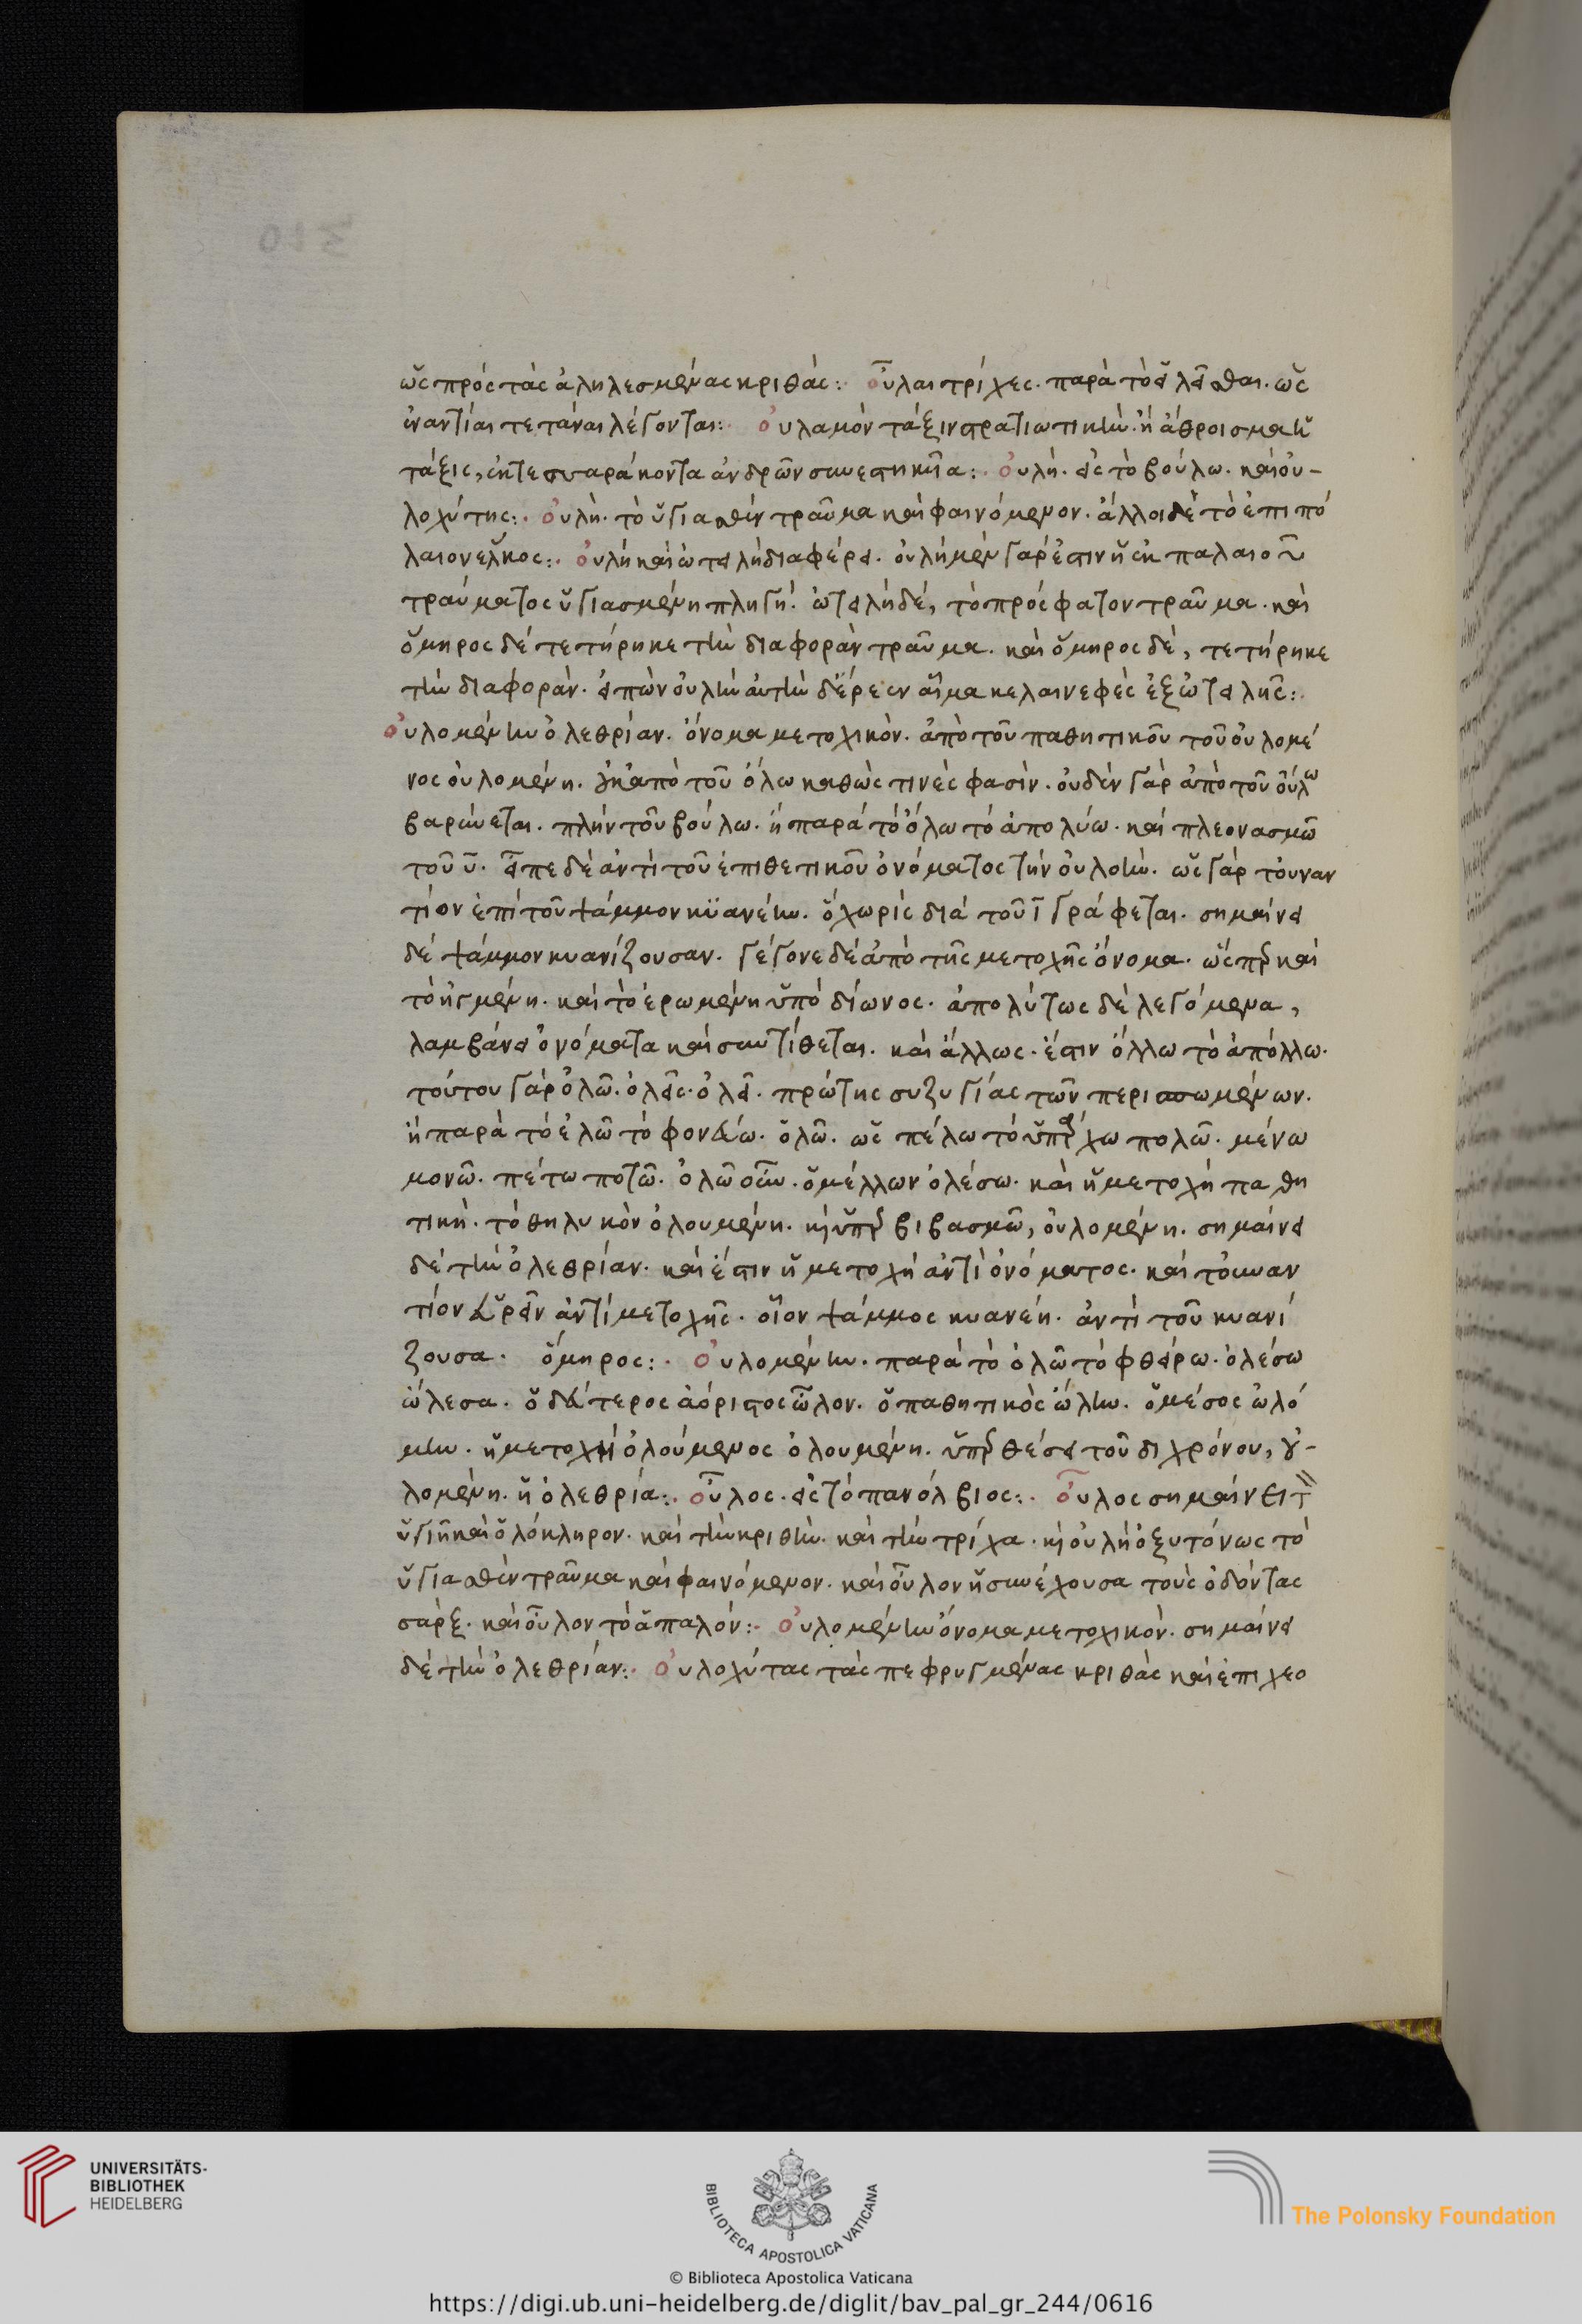 ὡς πρός τὰς ἀληλεσμένας κριθάς: οὖλαι τρίχες. παρὰ τὸ εἰλεῖσθαι. ὡς
ἐναντίαι τετάναι λέγονται: οὐλαμὸν τάξιν στρατιωτικὴν. ἢ ἄθροισμα ἢ
τάξις, ἐκ τεσσαράκοντα ἀνδρῶν συνεστηκῖα: οὐλή. εἰς τὸ βούλω. καὶ οὐ-
λοχύτης: οὐλὴ. τὸ ὑγιασθὲν τραῦμα καὶ φαινόμενον. ἄλλοι δὲ τὸ ἐπιπό
λαιον ἕλκος: οὐλὴ καὶ ὠτειλὴ διαφέρει. οὐλὴ μὲν γάρ ἐστιν ἡ ἐκ παλαιοῦ
τραύματος ὑγιασμένη πληγή. ὠτειλὴ δέ, τὸ πρόσφατον τραῦμα. καὶ
ὅμηρος δέ τετήρηκε τὴν διαφορὰν τραῦμα. καὶ ὅμηρος δὲ, τετήρηκε
τὴν διαφοράν. εἰπὼν οὐλὴν αὐτὴν δ' ἔρεεν αἷμα κελαινεφὲς ἐξ ὠτειλῆς:
οὐλομένην ὀλεθρίαν. ὄνομα μετοχικὸν. ἀπὸ τοῦ παθητικοῦ τοῦ οὐλομέ
νος οὐλομένη. οὐκ ἀπὸ τοῦ ὄλω καθώς τινὲς φασὶν. οὐδὲν γὰρ ἀπὸ τοῦ οὔλω
βαρύνεται. πλὴν τοῦ βούλω. ἢ παρά τὸ ὄλω τὸ ἀπολύω. καὶ πλεονασμῶ
τοῦ υ. εἶπε δὲ ἀντὶ τοῦ ἐπιθετικοῦ ὀνόματος τὴν οὐλοὴν. ὡς γάρ τοὐναν
τίον ἐπὶ τοῦ ψάμμον κϋανέην. ὃ χωρὶς διά τοῦ ι γράφεται. σημαίνει
δὲ ψάμμον κυανίζουσαν. γέγονε δὲ ἀπὸ τῆς μετοχῆς ὄνομα. ὥσπερ καὶ
τὸ ἠσμένη. καὶ τὸ ἐρωμένη ὑπὸ δίωνος. ἀπολύτως δὲ λεγόμενα,
λαμβάνει ὀνόματα καὶ συντίθεται. καὶ ἄλλως. ἔστιν ὄλλω τὸ ἀπόλλω.
τούτου γάρ ὀλῶ. ὀλεῖς. ὀλεῖ. πρώτης συζυγίας τῶν περισπωμένων.
ἢ παρὰ τὸ ἐλῶ τὸ φονεύω. ὀλῶ. ὡς πέλω τὸ ὑπάρχω πολῶ. μένω
μονῶ. πέτω ποτῶ. ὀλῶ οὖν. ὁ μέλλων ὀλέσω. καὶ ἡ μετοχὴ παθη
τικὴ. τὸ θηλυκὸν ὀλουμένη. καὶ ὑπερβιβασμῶ, οὐλομένη. σημαίνει
δὲ τὴν ὀλεθρίαν. καὶ ἔστιν ἡ μετοχὴ ἀντὶ ὀνόματος. καὶ τοὐναν
τίον εὑρεῖν ἀντὶ μετοχῆς. οἷον ψάμμος κυανέη. ἀντὶ τοῦ κυανί
ζουσα. ὅμηρος: οὐλομένην. παρὰ τὸ ὀλῶ τὸ φθείρω. ὀλέσω
ὤλεσα. ὁ δεύτερος ἀόριστος ὦλον. ὁ παθητικὸς ὤλην. ὁ μέσος ὠλό
μην. ἡ μετοχὴ ὀλούμενος ὀλουμένη. ὑπερθέσει τοῦ διχρόνου, οὐ-
λομένη. ἡ ὀλεθρία: οὖλος. εἰς τὸ πανόλβιος: οὖλος σημαίνει τ
ὑγιῆ καὶ ὁλόκληρον. καὶ τὴν κριθὴν. καὶ τὴν τρίχα. καὶ οὐλὴ ὀξυτόνως τὸ
ὑγιασθὲν τραῦμα καὶ φαινόμενον. καὶ οὖλον ἡ συνέχουσα τοὺς ὀδόντας
σάρξ. καὶ οὖλον τὸ ἁπαλόν: οὐλομένην ὄνομα μετοχικὸν. σημαίνει
δὲ τὴν ὀλεθρίαν: οὐλοχύτας τὰς πεφρυγμένας κριθὰς καὶ ἐπιχεο
UNIVERSITÄTS-
BIBLIOTHEK
HEIDELBERG
BIBLIOTECA APOSTOLICA VATICANA
The Polonsky Foundation
© Biblioteca Apostolica Vaticana
https://digi.ub.uni-heidelberg.de/diglit/bav_pal_gr_244/0616